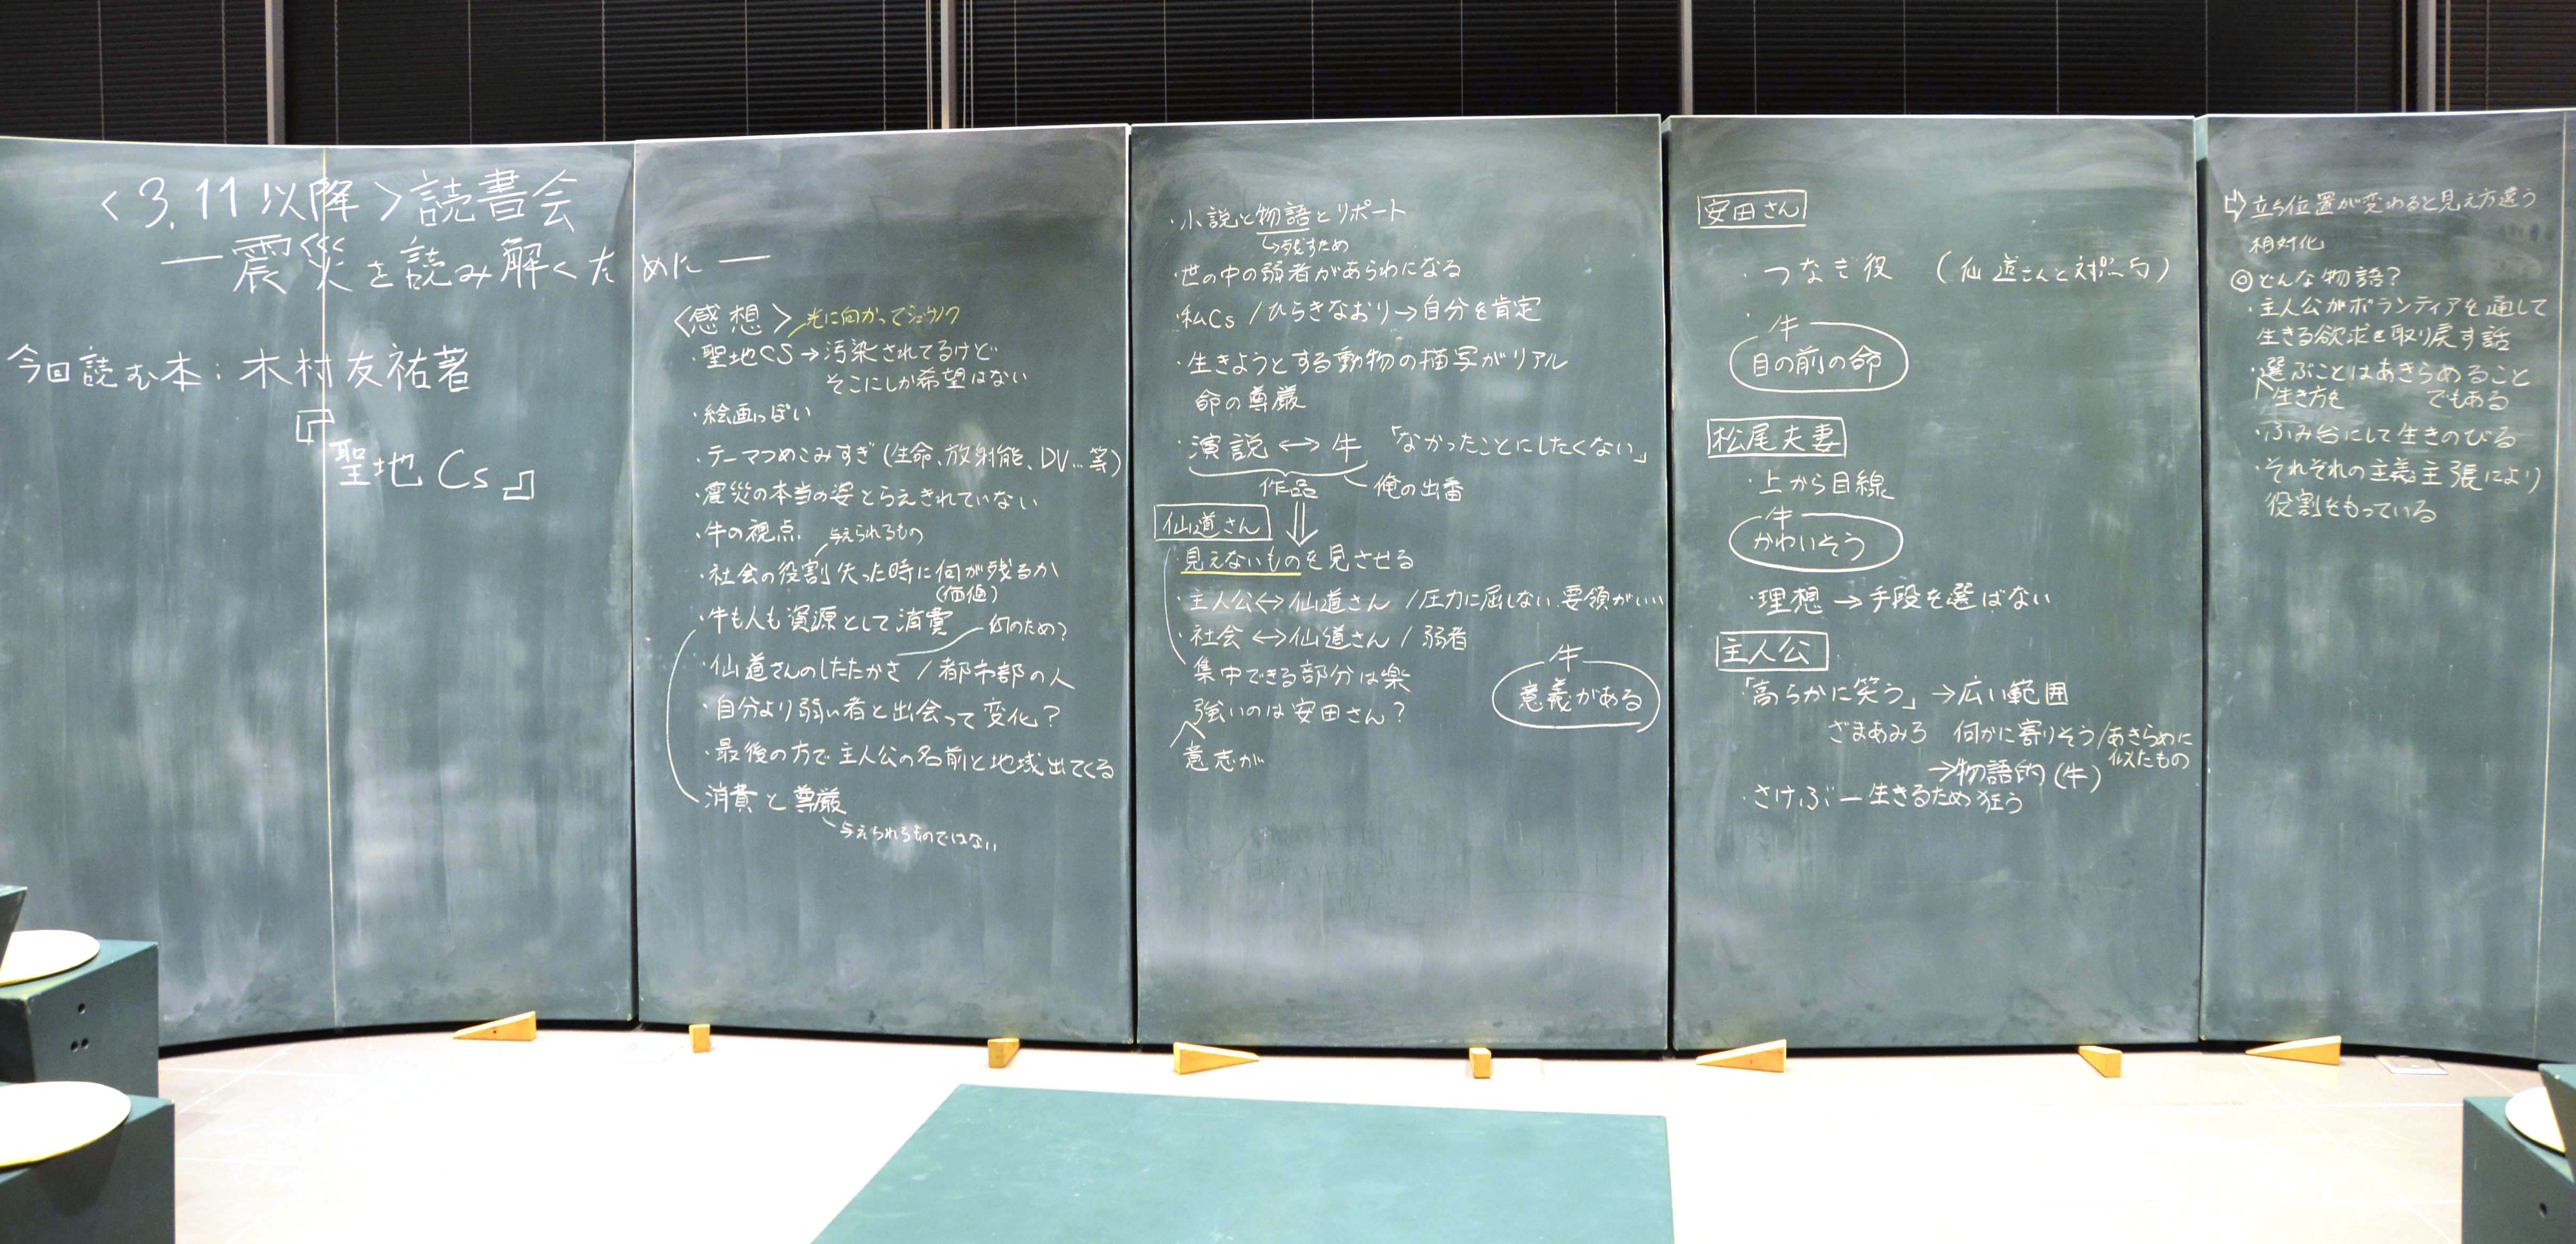 〈3.11以降〉読書会
―震災を読み解くために―
今回読む本:木村友祐著
『聖地Cs』
〈感想〉
光に向かって
・聖地CS→汚染されてるけど
そこにしか希望はない
・絵画っぽい
・テーマつめこみすぎ(生命、放射能、DV…等)
・震災の本当の姿とらえきれていない
・牛の視点
与えられるもの
・社会の役割失った時に何が残るか
(価値)
・牛も人も資源として消費
何のため?
・仙道さんのしたたかさ/都市部の人
・自分より弱い者と出会って変化?
・最後の方で主人公の名前と地域出てくる
消費と尊厳
与えられるものではない
・小説と物語とリポート
↳残すため
・世の中の弱者があらわになる
・私Cs/ひらきなおり→自分を肯定
・生きようとする動物の描写がリアル
命の尊厳
・演説↔牛「なかったことにしたくない」
作品
俺の出番
仙道さん
・見えないものを見させる
・主人公↔仙道さん/圧力に屈しない、要領がいい
・社会↔仙道さん/弱者
集中できる部分は楽
強いのは安田さん?
意志が
牛
意義がある
安田さん
・つなぎ役(仙道さんと対照的)
牛
目の前の命
松尾夫妻
・上から目線
牛
かわいそう
・理想→手段を選ばない
主人公
「高らかに笑う」→広い範囲
ざまあみろ 何かに寄りそう/あきらめに
似たもの
→物語的(牛)
・さけぶ―生きるため狂う
⇨立ち位置が変わると見え方違う
相対化
◎どんな物語?
・主人公がボランティアを通して
生きる欲求を取り戻す話
・選ぶことはあきらめること
生き方を でもある
・ふみ台にして生きのびる
・それぞれの主義主張により
役割をもっている